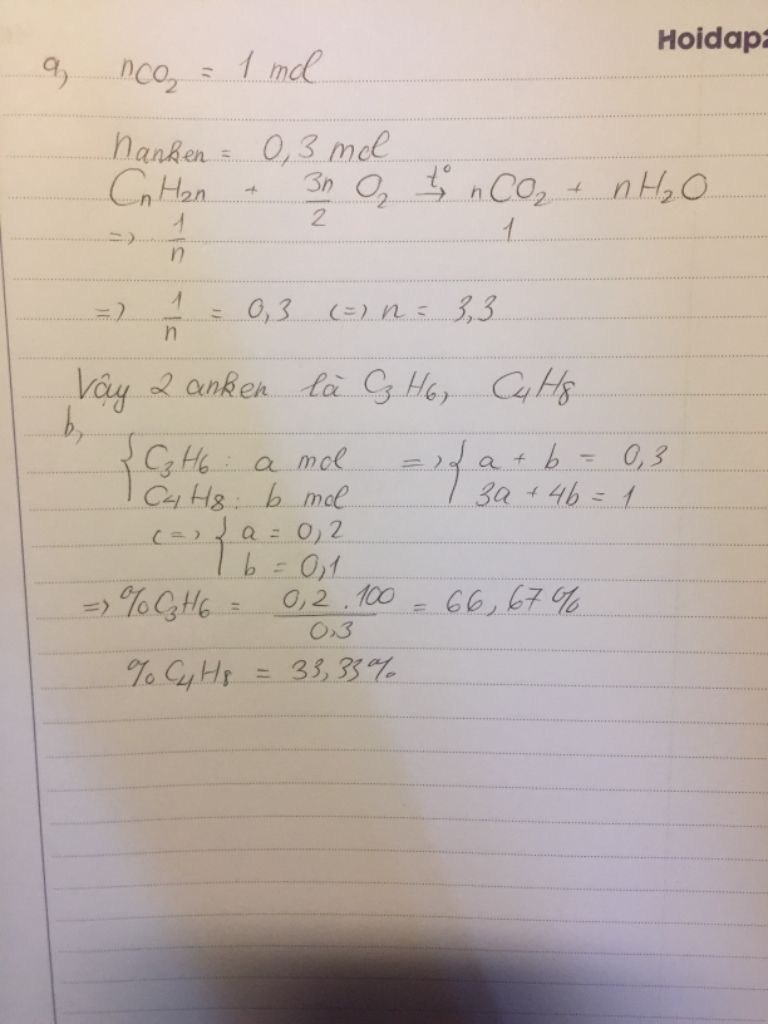 Hoidap2
a, nCO₂ = 1 mol
nanken = 0,3 mol
CnH2n + 3n/2 O₂ t°→ nCO₂ + nH₂O
=> 1/n 1
=> 1/n = 0,3 (=) n = 3,3
Vậy 2 anken là C₃H₆, C₄H₈
b,
{ C₃H₆: a mol => { a + b = 0,3
C₄H₈: b mol 3a + 4b = 1
(=> { a = 0,2
b = 0,1
=> %C₃H₆ = 0,2 . 100 / 0,3 = 66,67%
%C₄H₈ = 33,33%